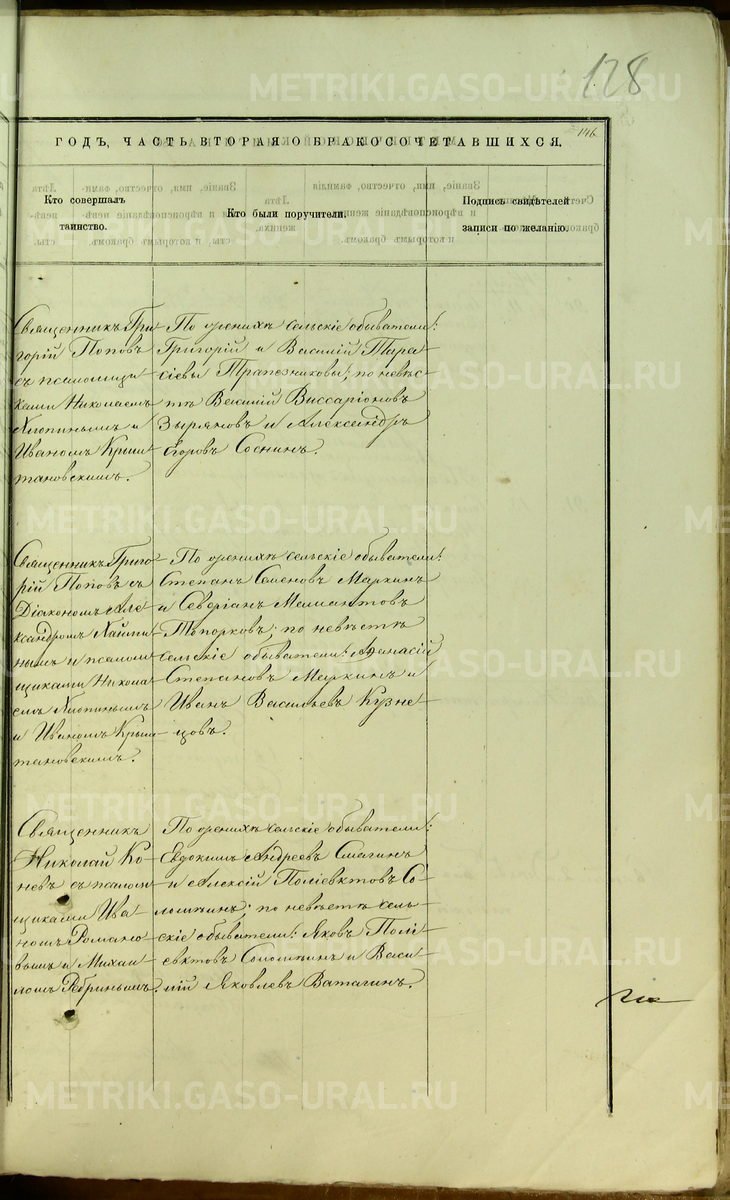 128
146
ГОДЪ, ЧАСТЬ ВТОРАЯ О БРАКОСОЧЕТАВШИХСЯ.
Кто совершалъ
таинство.
Кто были поручители.
Подпись свидѣтелей
записи по желанію.
Священникъ Гри-
горій Поповъ
съ псаломщи-
ками Николаемъ
Хлопинымъ и
Иваномъ Крыш-
тановскимъ.
По женихѣ сельскіе обыватели:
Григорій и Василій Тара-
сіевы Трапезниковы; по невѣс-
тѣ Василій Виссаріоновъ
Зыряновъ и Александръ
Егоровъ Соснинъ.
Священникъ Григо-
рій Поповъ съ
Діакономъ Але-
ксандромъ
нымъ и псалом-
щиками Никола-
емъ Хлопинымъ
и Иваномъ Крыш-
тановскимъ.
По женихѣ сельскіе обыватели:
Степанъ Семеновъ Маркинъ
и Северіанъ Мамантовъ
Топорковъ; по невѣстѣ
сельскіе обыватели: Аѳанасій
Степановъ Маркинъ и
Иванъ Васильевъ Кузне-
цовъ.
Священникъ
Николай Ко-
невъ съ псалом-
щиками Ива-
номъ Романо-
вымъ и Михаи-
ломъ Ребринымъ.
По женихѣ сельскіе обыватели:
Евдокимъ Андреевъ Смагинъ
и Алексій Поліевктовъ Со-
ломкинъ; по невѣстѣ сель-
скіе обыватели: Яковъ Полі-
евктовъ Соломкинъ и Васи-
лій Яковлевъ Ватагинъ.
METRIKI.GASO-URAL.RU
METRIKI.GASO-URAL.RU
METRIKI.GASO-URAL.RU
METRIKI.GASO-URAL.RU
METRIKI.GASO-URAL.RU
METRIKI.GASO-URAL.RU
METRIKI.GASO-URAL.RU
METRIKI.GASO-URAL.RU